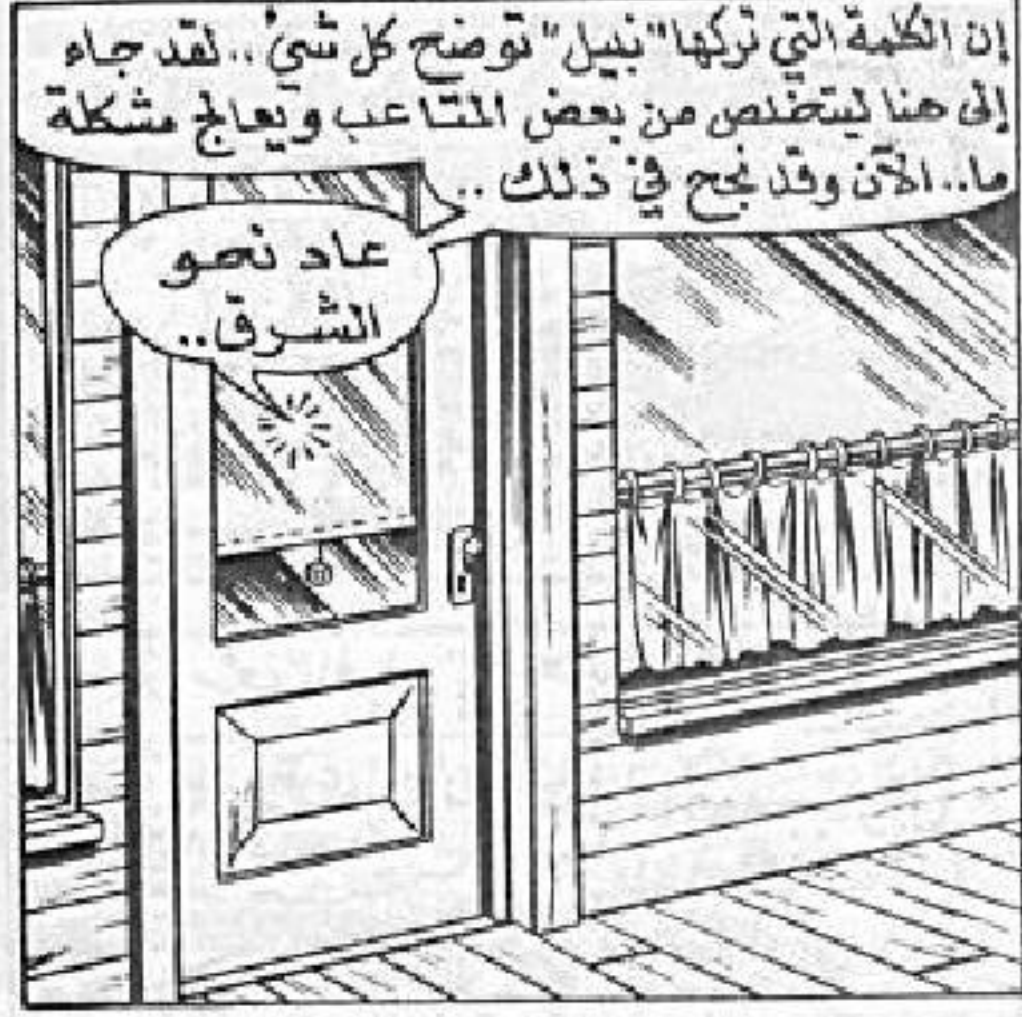 إن الكلمة التي تركها "نبيل" توضح كل شيء.. لقد جاء
إلى هنا ليتخلص من بعض المتاعب ويعالج مشكلة
ما.. الآن وقد نجح في ذلك ..
عاد نحو
الشرق..